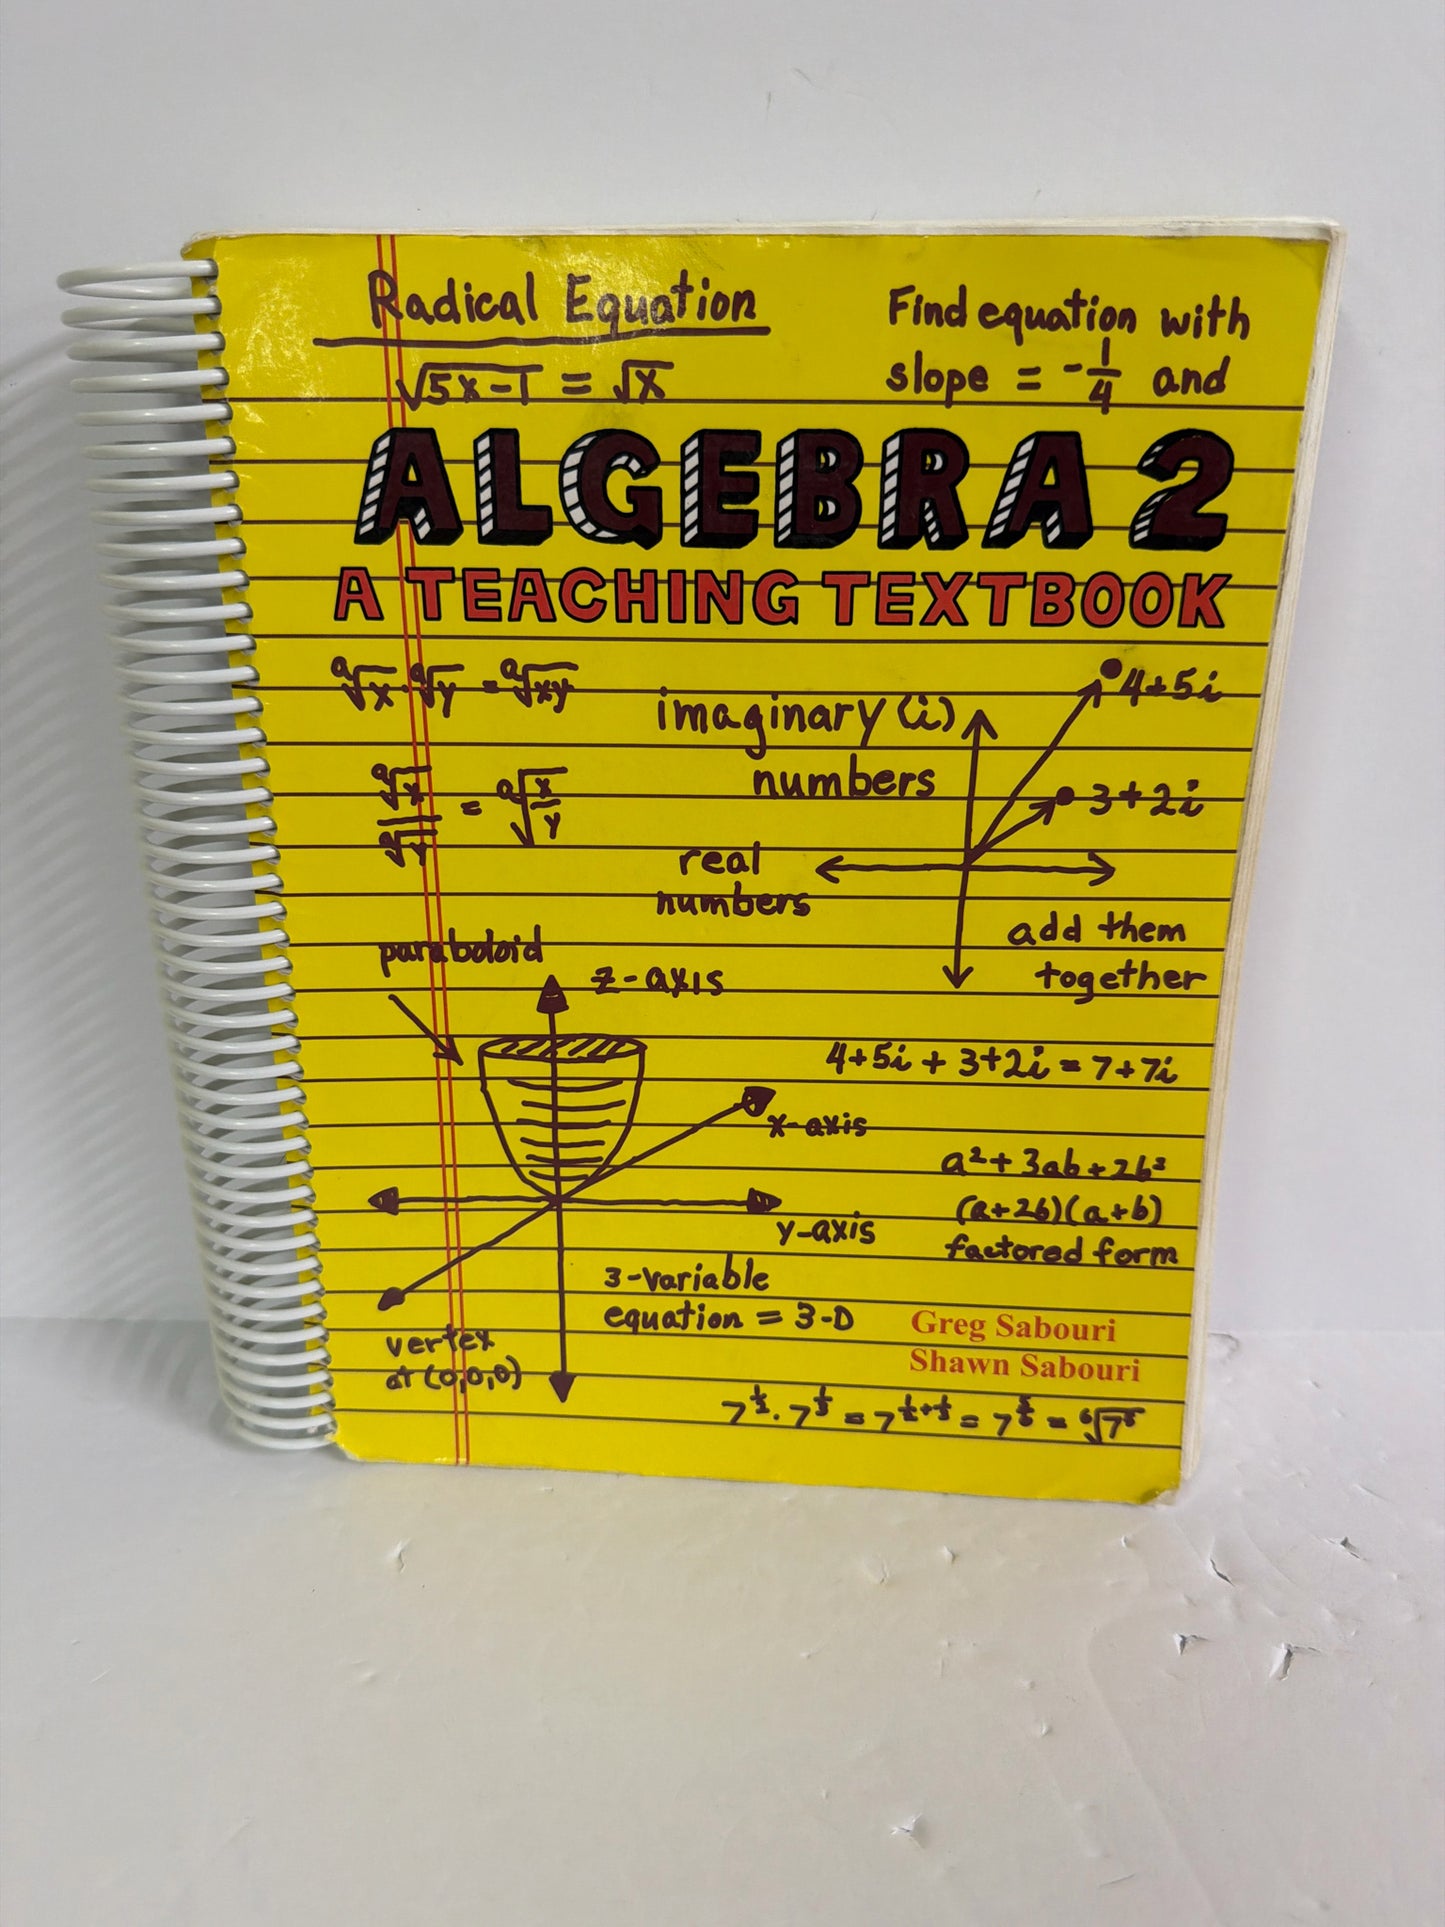 Radical Equation
√5x-1 = √x
Find equation with
slope = -1/4 and
ALGEBRA 2
A TEACHING TEXTBOOK
ᵃ√x · ᵃ√y = ᵃ√xy
ᵃ√x / ᵃ√y = ᵃ√x/y
imaginary (i)
numbers
4+5i
3+2i
real
numbers
add them
together
paraboloid
z-axis
4+5i + 3+2i = 7+7i
x-axis
a²+3ab+2b²
(a+2b)(a+b)
factored form
y-axis
3-variable
equation = 3-D
vertex
at (0,0,0)
Greg Sabouri
Shawn Sabouri
7^1/2 · 7^1/3 = 7^1/2+1/3 = 7^5/6 = ⁶√7⁵